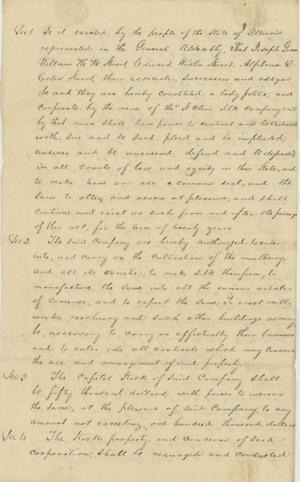 Sec 1 Be it enacted by the people of the State of Illinois
represented in the General Assembly, That Joseph
William H. W. Edward
Carlos their associates, successors and assigns
be and they are hereby constituted a body politic, and
corporate, by the name of the "St Silk Company" and
by that name shall have power to contract and be contracted
with, sue and be sued plead and be impleaded,
answer and be answered, defend and be defended
in all courts of law and equity in this State, and
to make have and use a common seal, and the
same to alter and renew at pleasure, and shall
continue and exist as such from and after the passage
of this act, for the term of twenty years
Sec 2 The said Company are hereby authorized to enter
into, and carry on the cultivation of the mulberry,
and all its varieties, to make silk therefrom, to
manufacture the same into all the various articles
of commerce, and to export the same, To erect mills,
works, machinery and such other buildings as may
be, necessary to carry on effectually their business
and to enter into all contracts which may concern
the use and management of said property
Sec 3 The Capital Stock of Said Company shall
be fifty thousand dollars, with power to increase
the same, at the pleasure of said Company, to any
amount not exceeding one hundred thousand dollars
Sec 4 The Stock property and concerns of said
corporation, shall be managed and conducted